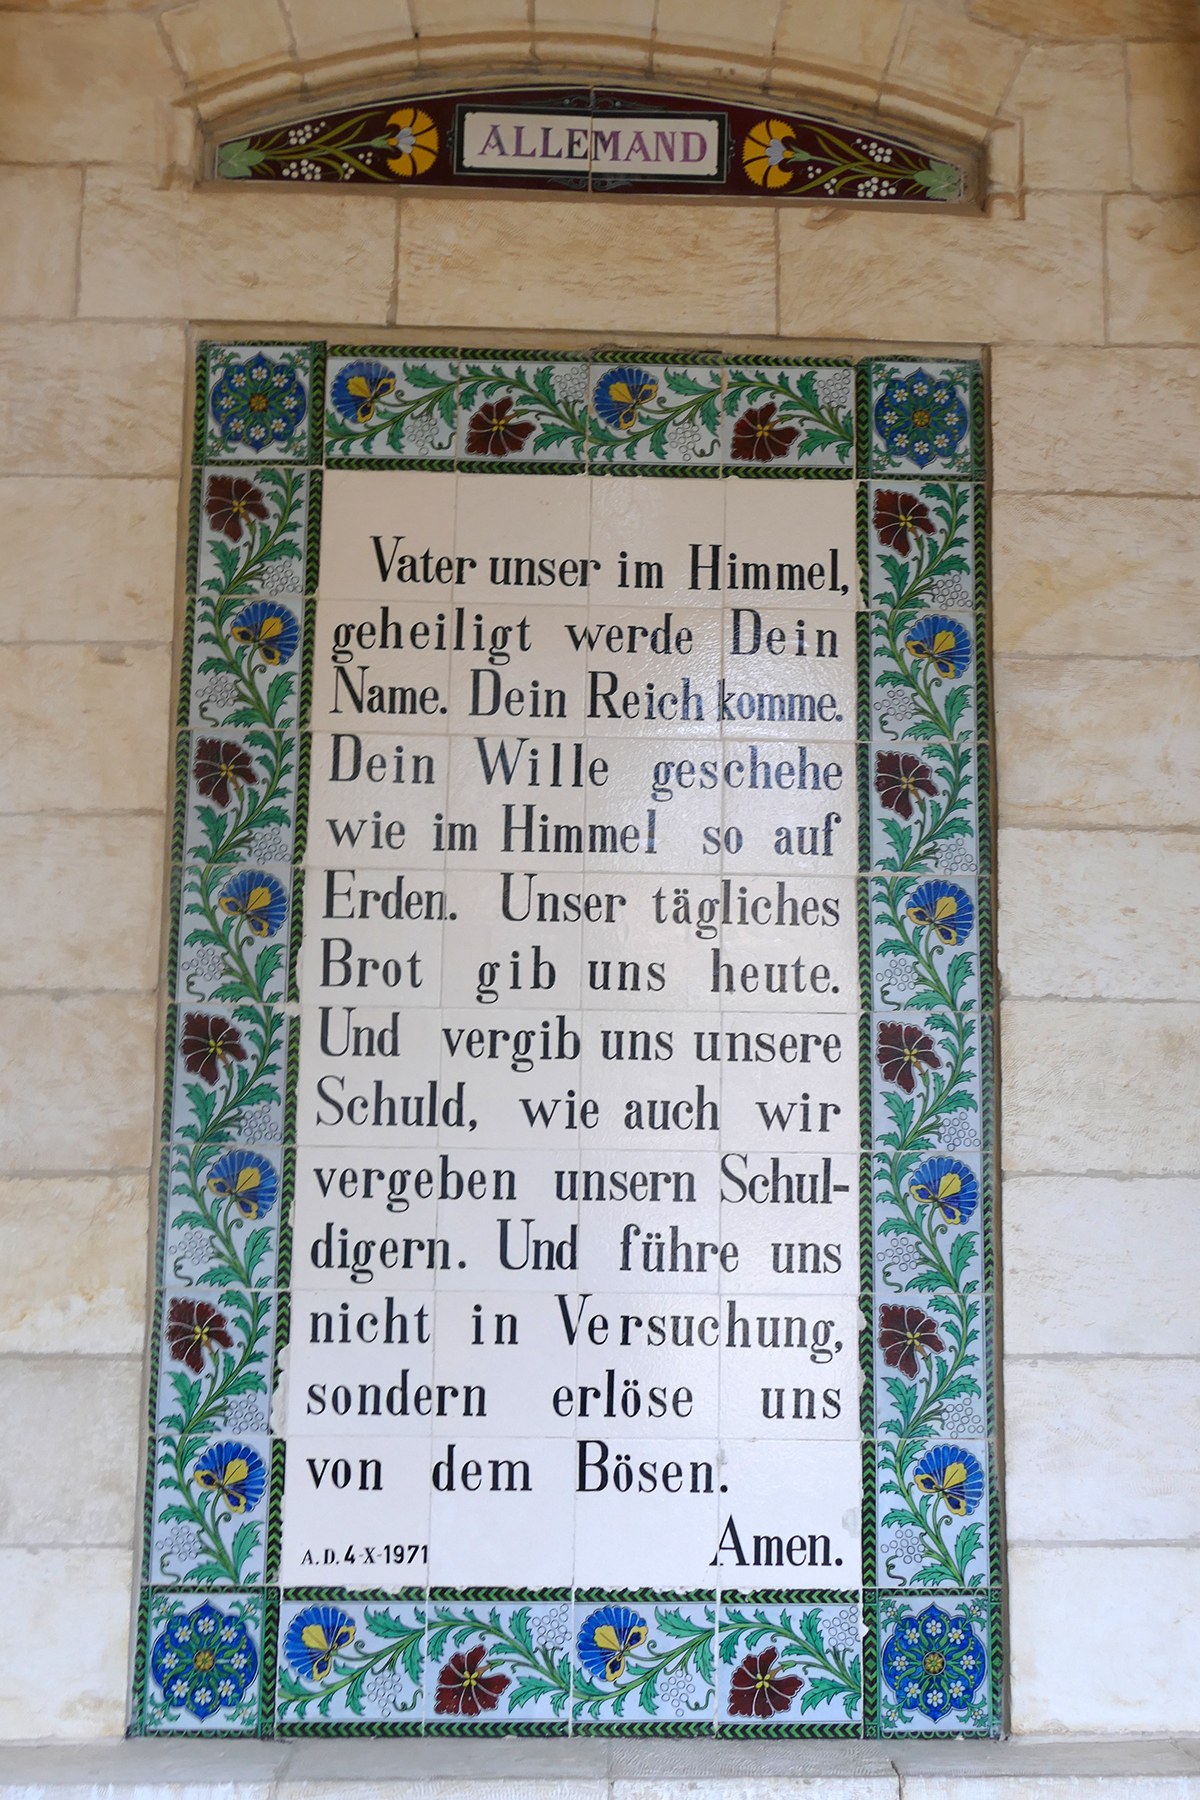 ALLEMAND
Vater unser im Himmel,
geheiligt werde Dein
Name. Dein Reich komme.
Dein Wille geschehe
wie im Himmel so auf
Erden. Unser tägliches
Brot gib uns heute.
Und vergib uns unsere
Schuld, wie auch wir
vergeben unsern Schul-
digern. Und führe uns
nicht in Versuchung,
sondern erlöse uns
von dem Bösen.
Amen.
A.D. 4-X-1971